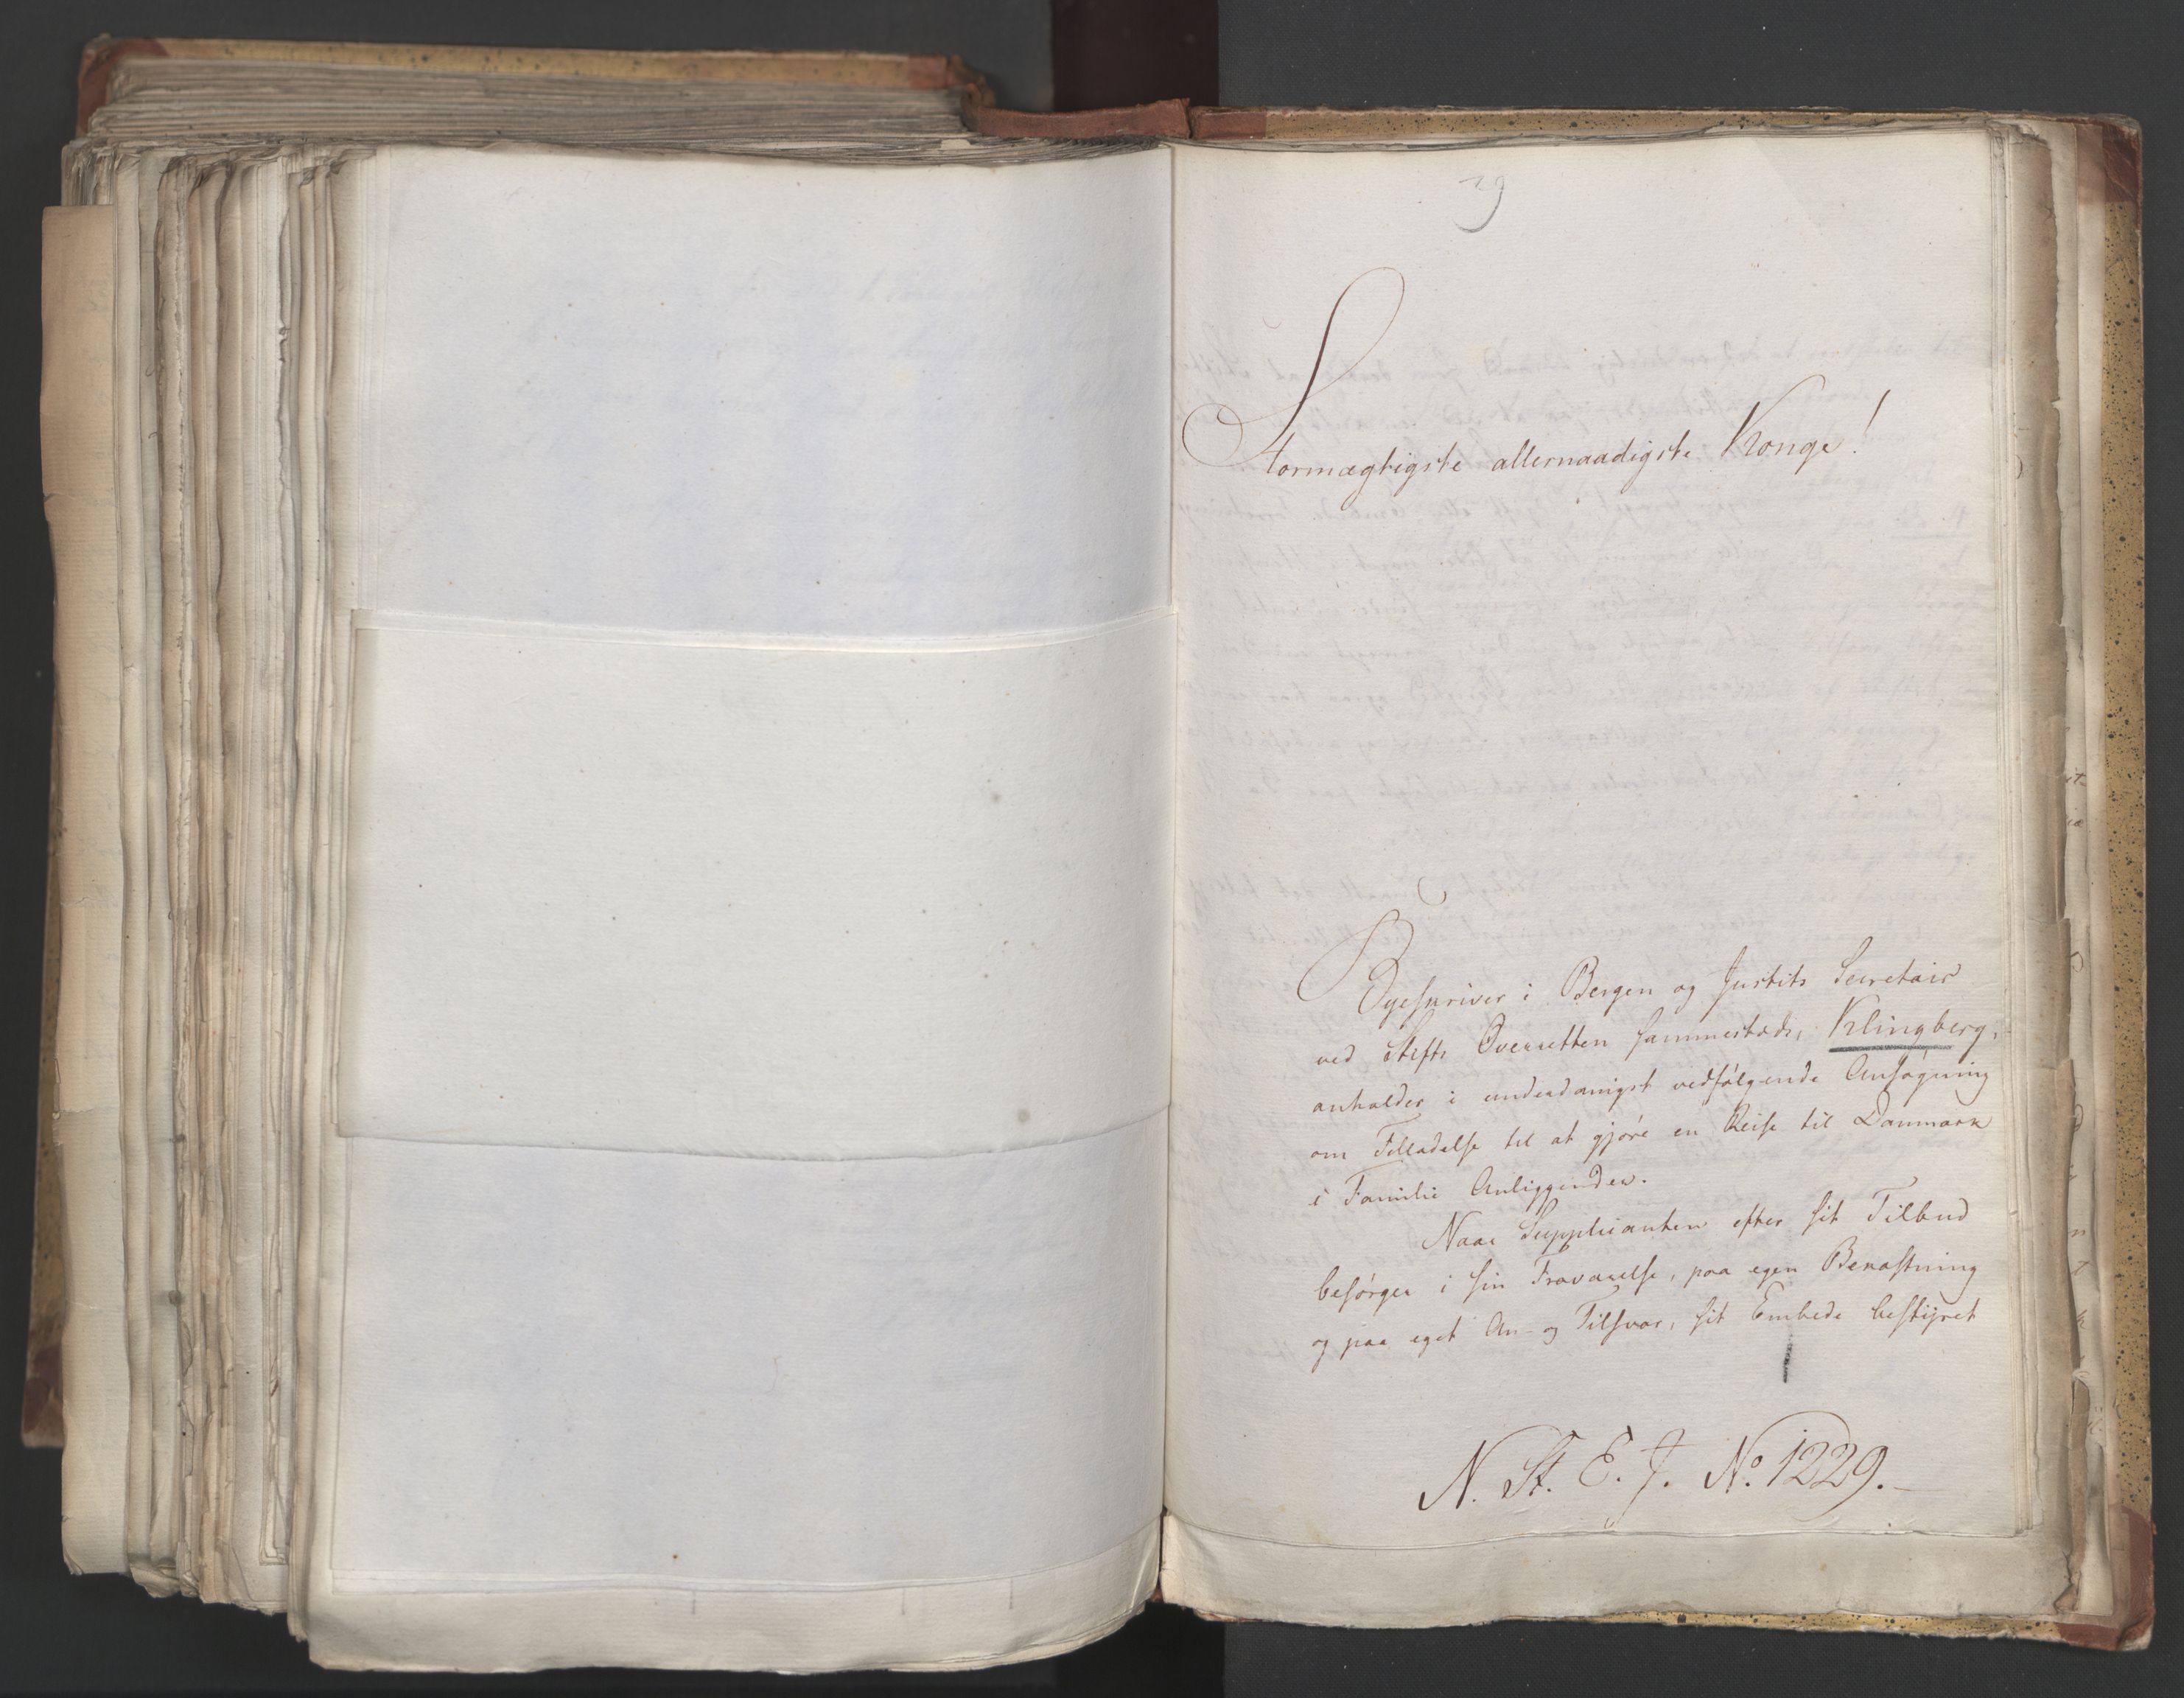 39
Stormægtigste allernaadigste Konge!
Byeskriver i Bergen og Justits Secretair
ved Stifts Overretten sammesteds, Klingberg,
anholder i underdanigst vedfølgende Ansøgning
om Tilladelse til at gjøre en Reise til Danmark
i Familie Anliggender.
Naar Supplicanten efter sit Tilbud
besørger i sin Fraværelse, paa egen Bekostning
og paa eget An- og Tilsvar, sit Embede bestyret
N. St. E. J. No. 1229.